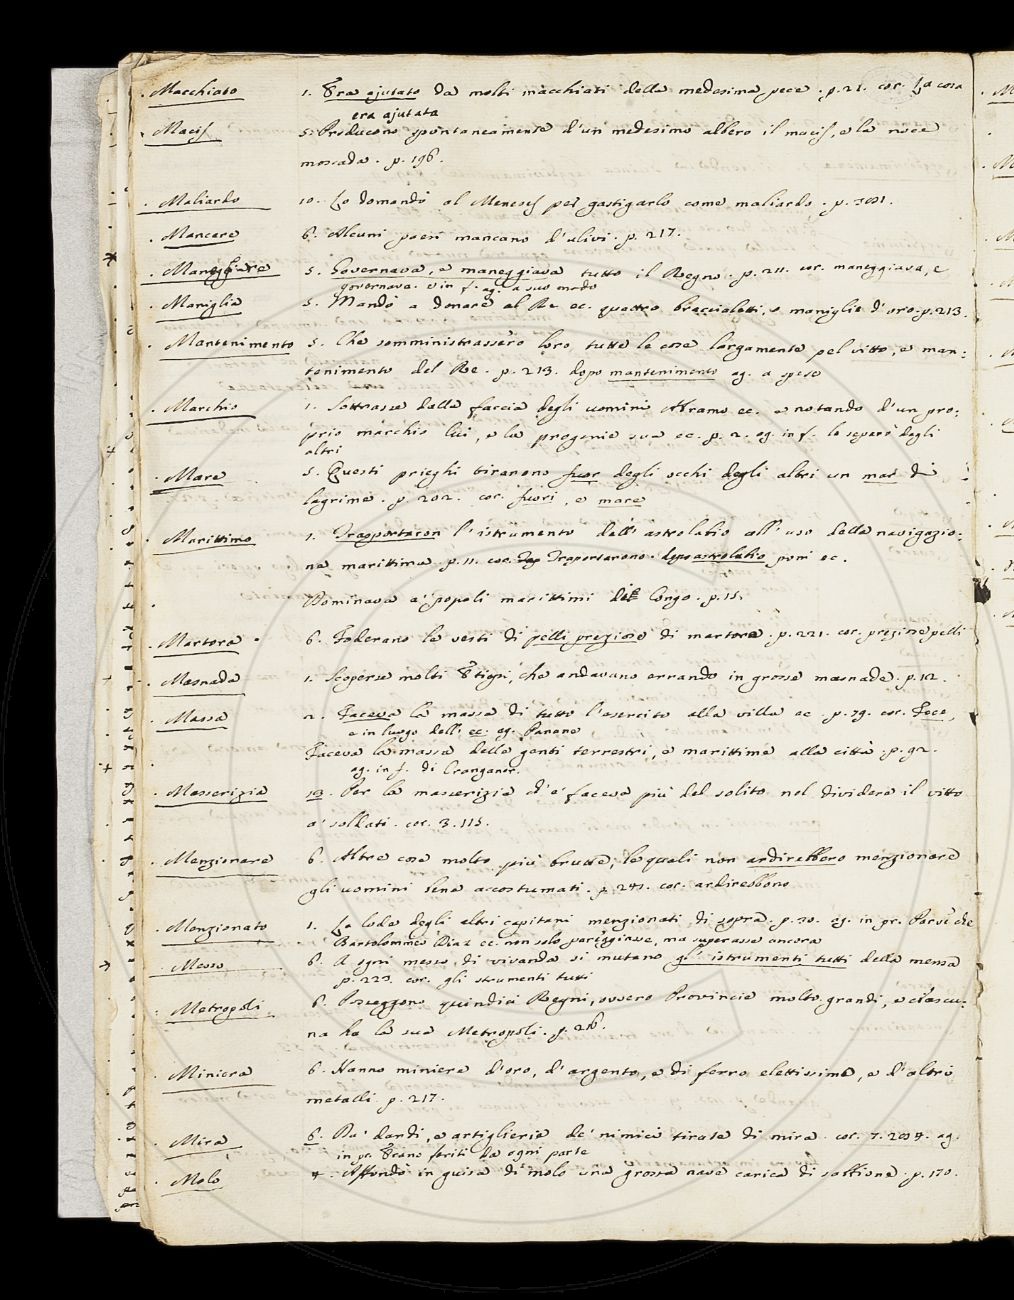 Macchiato 1. Era ajutato da molti macchiati della medesima pece. p. 21. cor. La cosa
era ajutata
Macis 5. Producono spontaneamente d'un medesimo albero il macis, e la noce
moscada. p. 196.
Maliardo 10. Lo domandò al Menesth per gastigarlo come maliardo. p.
Mancare 6. Alcuni paesi mancano d'ulivi. p. 217.
Maneggiare 5. Governava, e maneggiava tutto il Regno. p. 211. cor. maneggiava, e
governava. e in f. ag. a suo modo
Maniglia 5. Mandò a donare al Re ec. quattro braccialetti, e maniglie d'oro. p. 213.
Mantenimento 5. Che somministrassero loro tutte le cose largamente pel vitto, e man:
tenimento del Re. p. 213. dopo mantenimento ag. a spese
Marchio 1. Sottrasse dalla faccia degli uomini Abramo ec. e notando d'un pro:
prio marchio lui, e la progenie sua ec. p. 2. ag. in f. lo separò degli
altri
Mare 5. Questi prieghi tiranono fuor degli occhi degli altri un mar di
lagrime. p. 202. cor. fuori, e mare
Marittimo 1. Trasportaron l'istrumento dell'astrolabio all'uso della navigazio:
ne marittima p. 11. cor. Trasportarono. dopo astrolabio poni ec.
Dominava a' popoli marittimi del Congo. p. 15.
Martora 6. Foderano le vesti di pelli preziose di martora. p. 221. cor. preziose pelli
Masnada 1. Scoperse molti Etiopi, che andavano errando in grosse masnade. p. 12.
Massa 2. Faceva la massa di tutto l'esercito alla villa ec p. 79. cor. Fece,
e in luogo dell' ec. ag. Panane
Faceva la massa delle genti terrestri, e marittime alla città. p. 92.
ag. in f. di Cranganor.
Masserizia 13. Per la masserizia ch'e' faceva più del solito nel dividere il vitto
a' soldati. cor. 3. 115.
Menzionare 6. Altre cose molto più brutte, le quali non ardirebbero menzionare
gli uomini bene accostumati. p. 241. cor. ardirebbono
Menzionato 1. La lode degli altri capitani menzionati di sopra. p. 30. ag. in pr. Parve che
Bartolommeo Diaz ec. non solo pareggiasse, ma superasse ancora
Messo 6. A ogni messo di vivanda si mutano gl'istrumenti tutti della mensa
p. 223. cor. gli strumenti tutti
Metropoli 6. Posseggono quindici Regni, ovvero Provincie molto grandi, e ciascu:
na ha la sua Metropoli. p. 216.
Miniera 6. Hanno miniere d'oro, d'argento, e di ferro elettissime, e d'altri
metalli p. 217.
Mira 6. Da' dardi, e artiglierie de' nimici tirate di mira. cor. 7. ag.
in pr. Erano feriti da ogni parte
Molo 4. Affondò in guisa di molo una grossa nave carica di sassi p. 170.